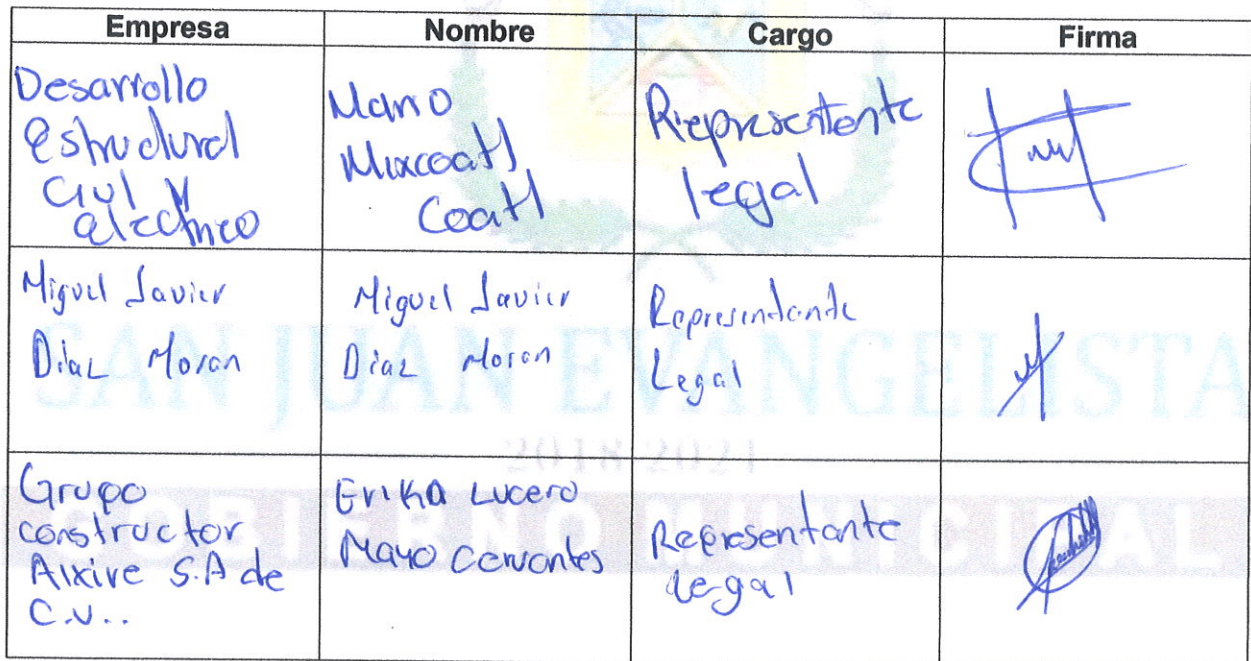 Empresa Nombre Cargo Firma
Desarrollo
estructural
Civil y
electrico
Mario
Mixcoatl
Coatl
Representante
legal
Miguel Javier
Diaz Moran
Miguel Javier
Diaz Moran
Representante
Legal
Grupo
constructor
Aixive S.A de
C.V..
Erika Lucero
Mayo Cervantes
Representante
legal
SAN JUAN EVANGELISTA
2018-2021
GOBIERNO MUNICIPAL